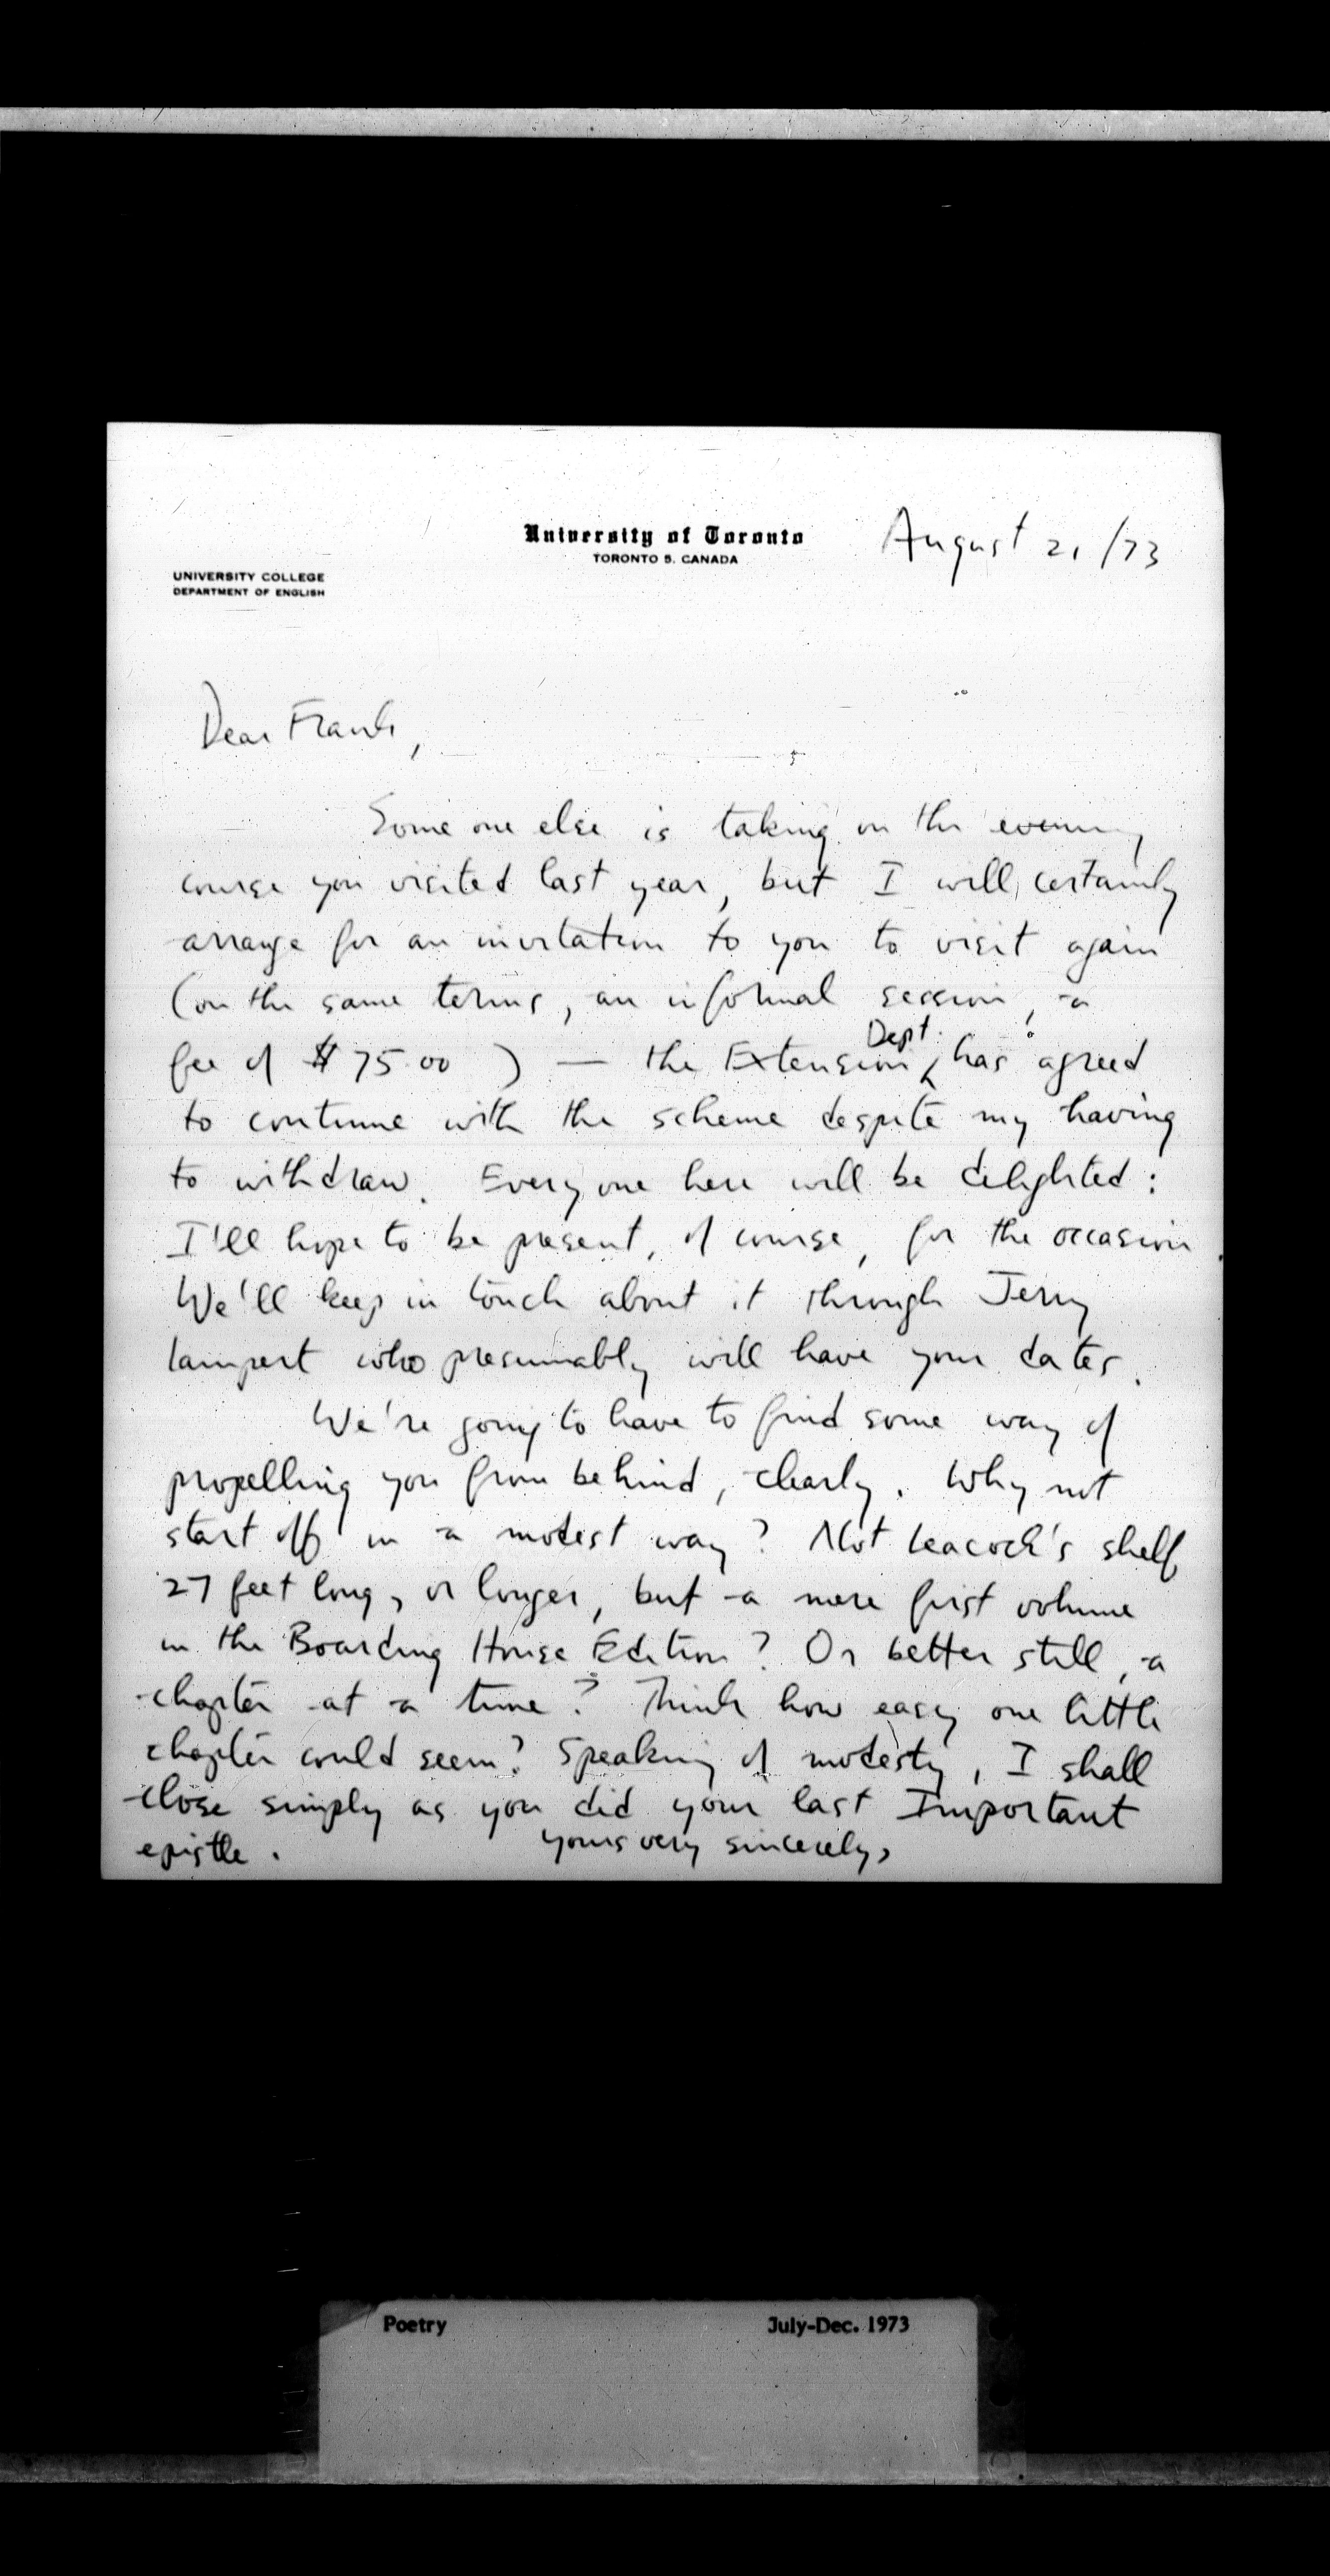 University of Toronto
TORONTO 5, CANADA
August 21/73
UNIVERSITY COLLEGE
DEPARTMENT OF ENGLISH
Dear Frank,
Some one else is taking on the evening
course you visited last year, but I will certainly
arrange for an invitation to you to visit again
(on the same terms, an informal session, a
fee of $75.00) — the Extension Dept. has agreed
to continue with the scheme despite my having
to withdraw. Everyone here will be delighted:
I'll hope to be present, of course, for the occasion.
We'll keep in touch about it through Jerry
Lampert who presumably will have your dates.
We're going to have to find some way of
propelling you from behind, clearly. Why not
start off in a modest way? Not Leacock's shelf
27 feet long, or longer, but a mere first volume
in the Boarding House Edition? Or better still, a
chapter at a time? Think how easy one little
chapter could seem? Speaking of modesty, I shall
close simply as you did your last Important
epistle. yours very sincerely,
Poetry July-Dec. 1973